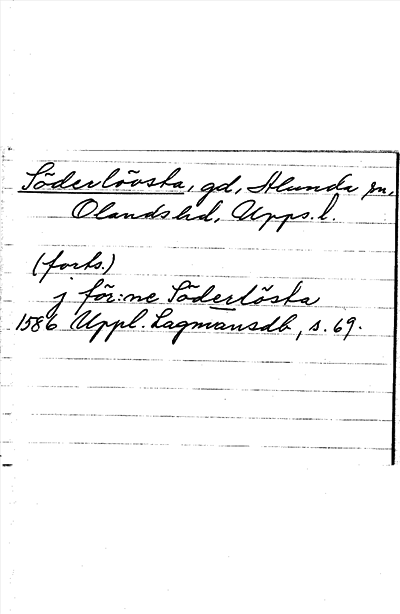 Söderlövsta, gd, Alunda sn,
Olands hd, Upps. l.
(forts.)
j för:ne Söderlöska
1586 Uppl. Lagmansdb, s. 69.